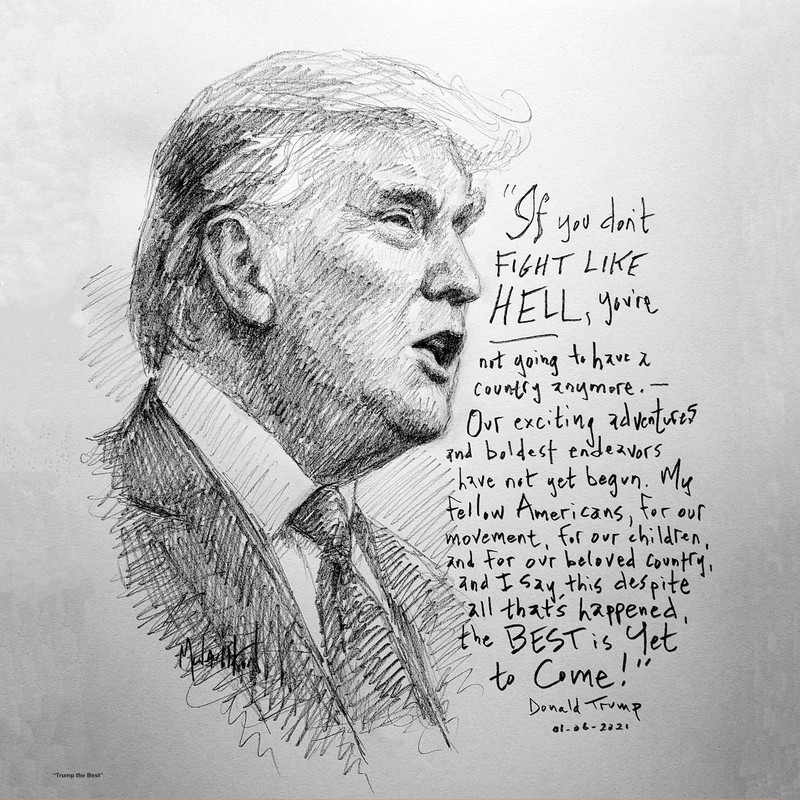 "If you don't
FIGHT LIKE
HELL, you're
not going to have a
country anymore. —
Our exciting adventures
and boldest endeavors
have not yet begun. My
fellow Americans, for our
movement, for our children,
and for our beloved country,
and I say this despite
all that's happened,
the BEST is Yet
to Come!"
Donald Trump
01-06-2021
"Trump the Best"